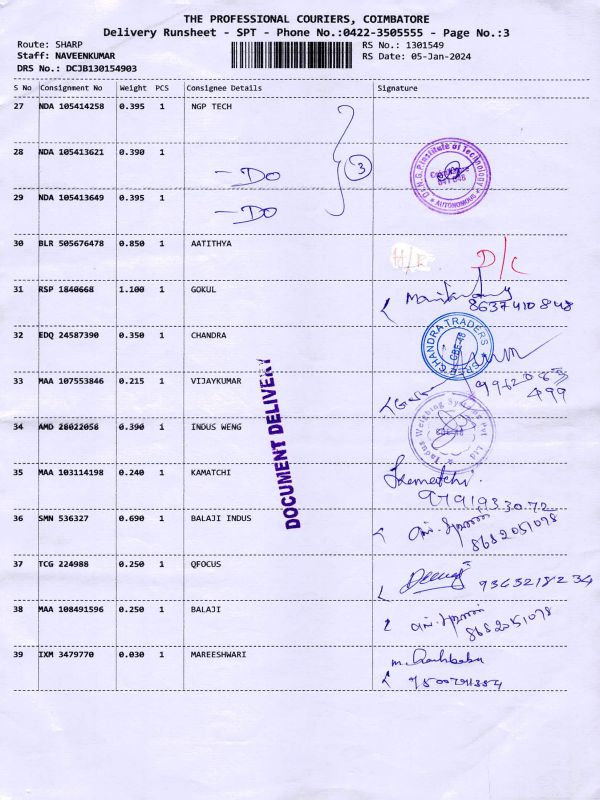 THE PROFESSIONAL COURIERS, COIMBATORE
Delivery Runsheet - SPT - Phone No.:0422-3505555 - Page No.:3
Route: SHARP RS No.: 1301549
Staff: NAVEENKUMAR RS Date: 05-Jan-2024
DRS No.: DCJB130154903
S No Consignment No Weight PCS Consignee Details Signature
27 NDA 105414258 0.395 1 NGP TECH
28 NDA 105413621 0.390 1
- Do 3
Dr.N.G.P.Institute of Technology
AUTONOMOUS
29 NDA 105413649 0.395 1
- Do
30 BLR 505676478 0.850 1 AATITHYA
D/C
31 RSP 1840668 1.100 1 GOKUL
8637410848
32 EDQ 24587390 0.350 1 CHANDRA
SREE CHANDRA TRADERS
33 MAA 107553846 0.215 1 VIJAYKUMAR
499
34 AMD 28022058 0.390 1 INDUS WENG
Indus Weighing Systems Pvt Ltd
DOCUMENT DELIVERY
35 MAA 103114198 0.240 1 KAMATCHI
Kamatchi.
9791933072
36 SMN 536327 0.690 1 BALAJI INDUS
8682051078
37 TCG 224988 0.250 1 QFOCUS
9365218234
38 MAA 108491596 0.250 1 BALAJI
8682051078
39 IXM 3479770 0.030 1 MAREESHWARI